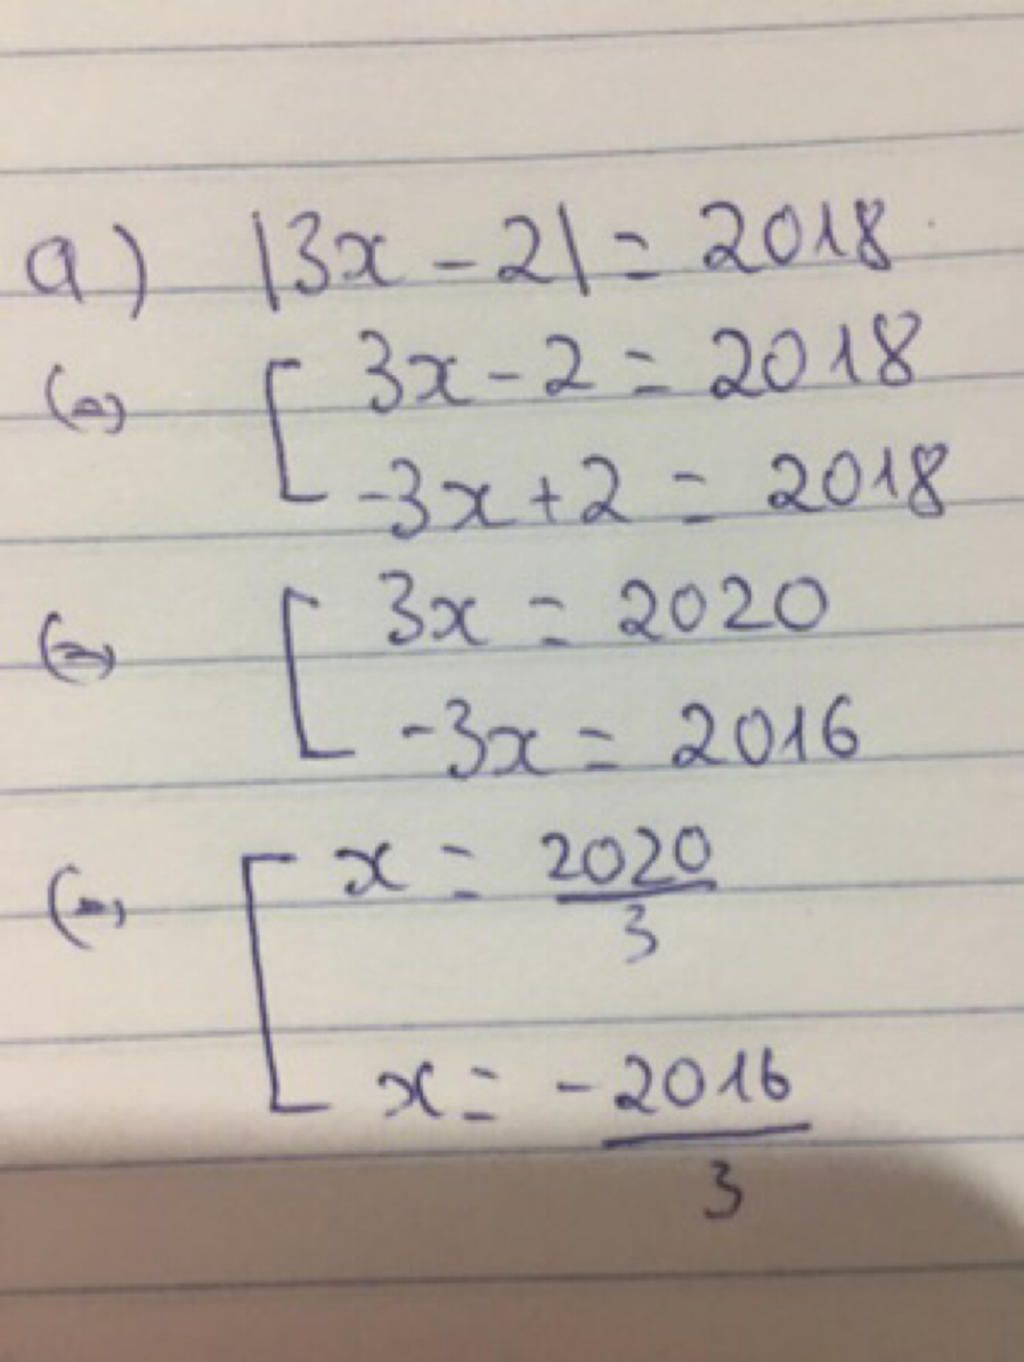 a) |3x - 2| = 2018
(=) [ 3x - 2 = 2018
-3x + 2 = 2018
(=) [ 3x = 2020
-3x = 2016
(=) [ x = 2020/3
x = -2016/3